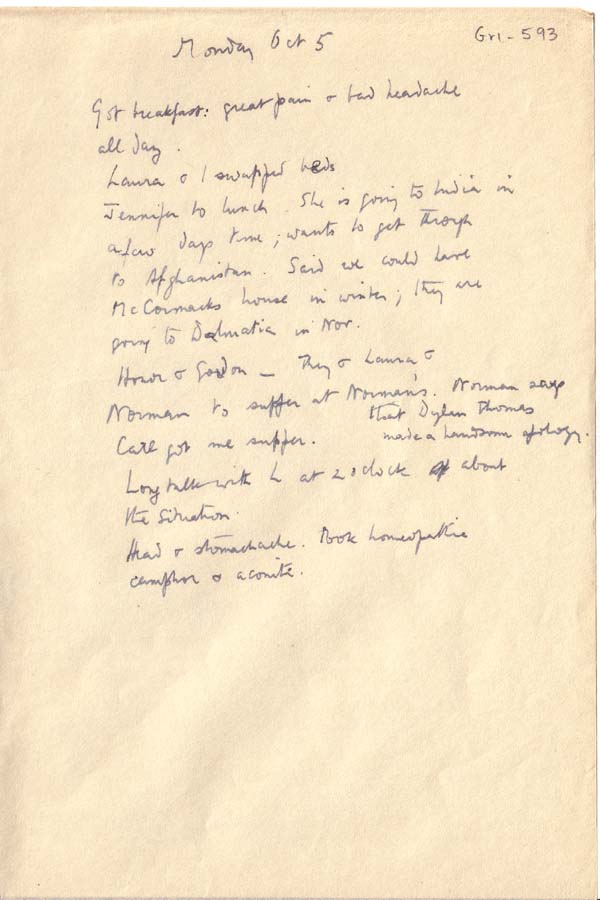 Gri - 593
Monday Oct 5
Got breakfast: great pain & bad headache
all day.
Laura & I swapped beds
Jennifer to lunch. She is going to India in
a few days time; wants to get through
to Afghanistan. Said we could have
McCormacks house in winter; they are
going to Dalmatia in Nov.
Honor & Gordon — They & Laura &
Norman to supper at Norman's. Norman says
that Dylan Thomas
made a handsome apology.
Cate got me supper.
Long talk with L at 2 o'clock about
the situation.
Head & stomachache. Took homeopathic
camphor & aconite.